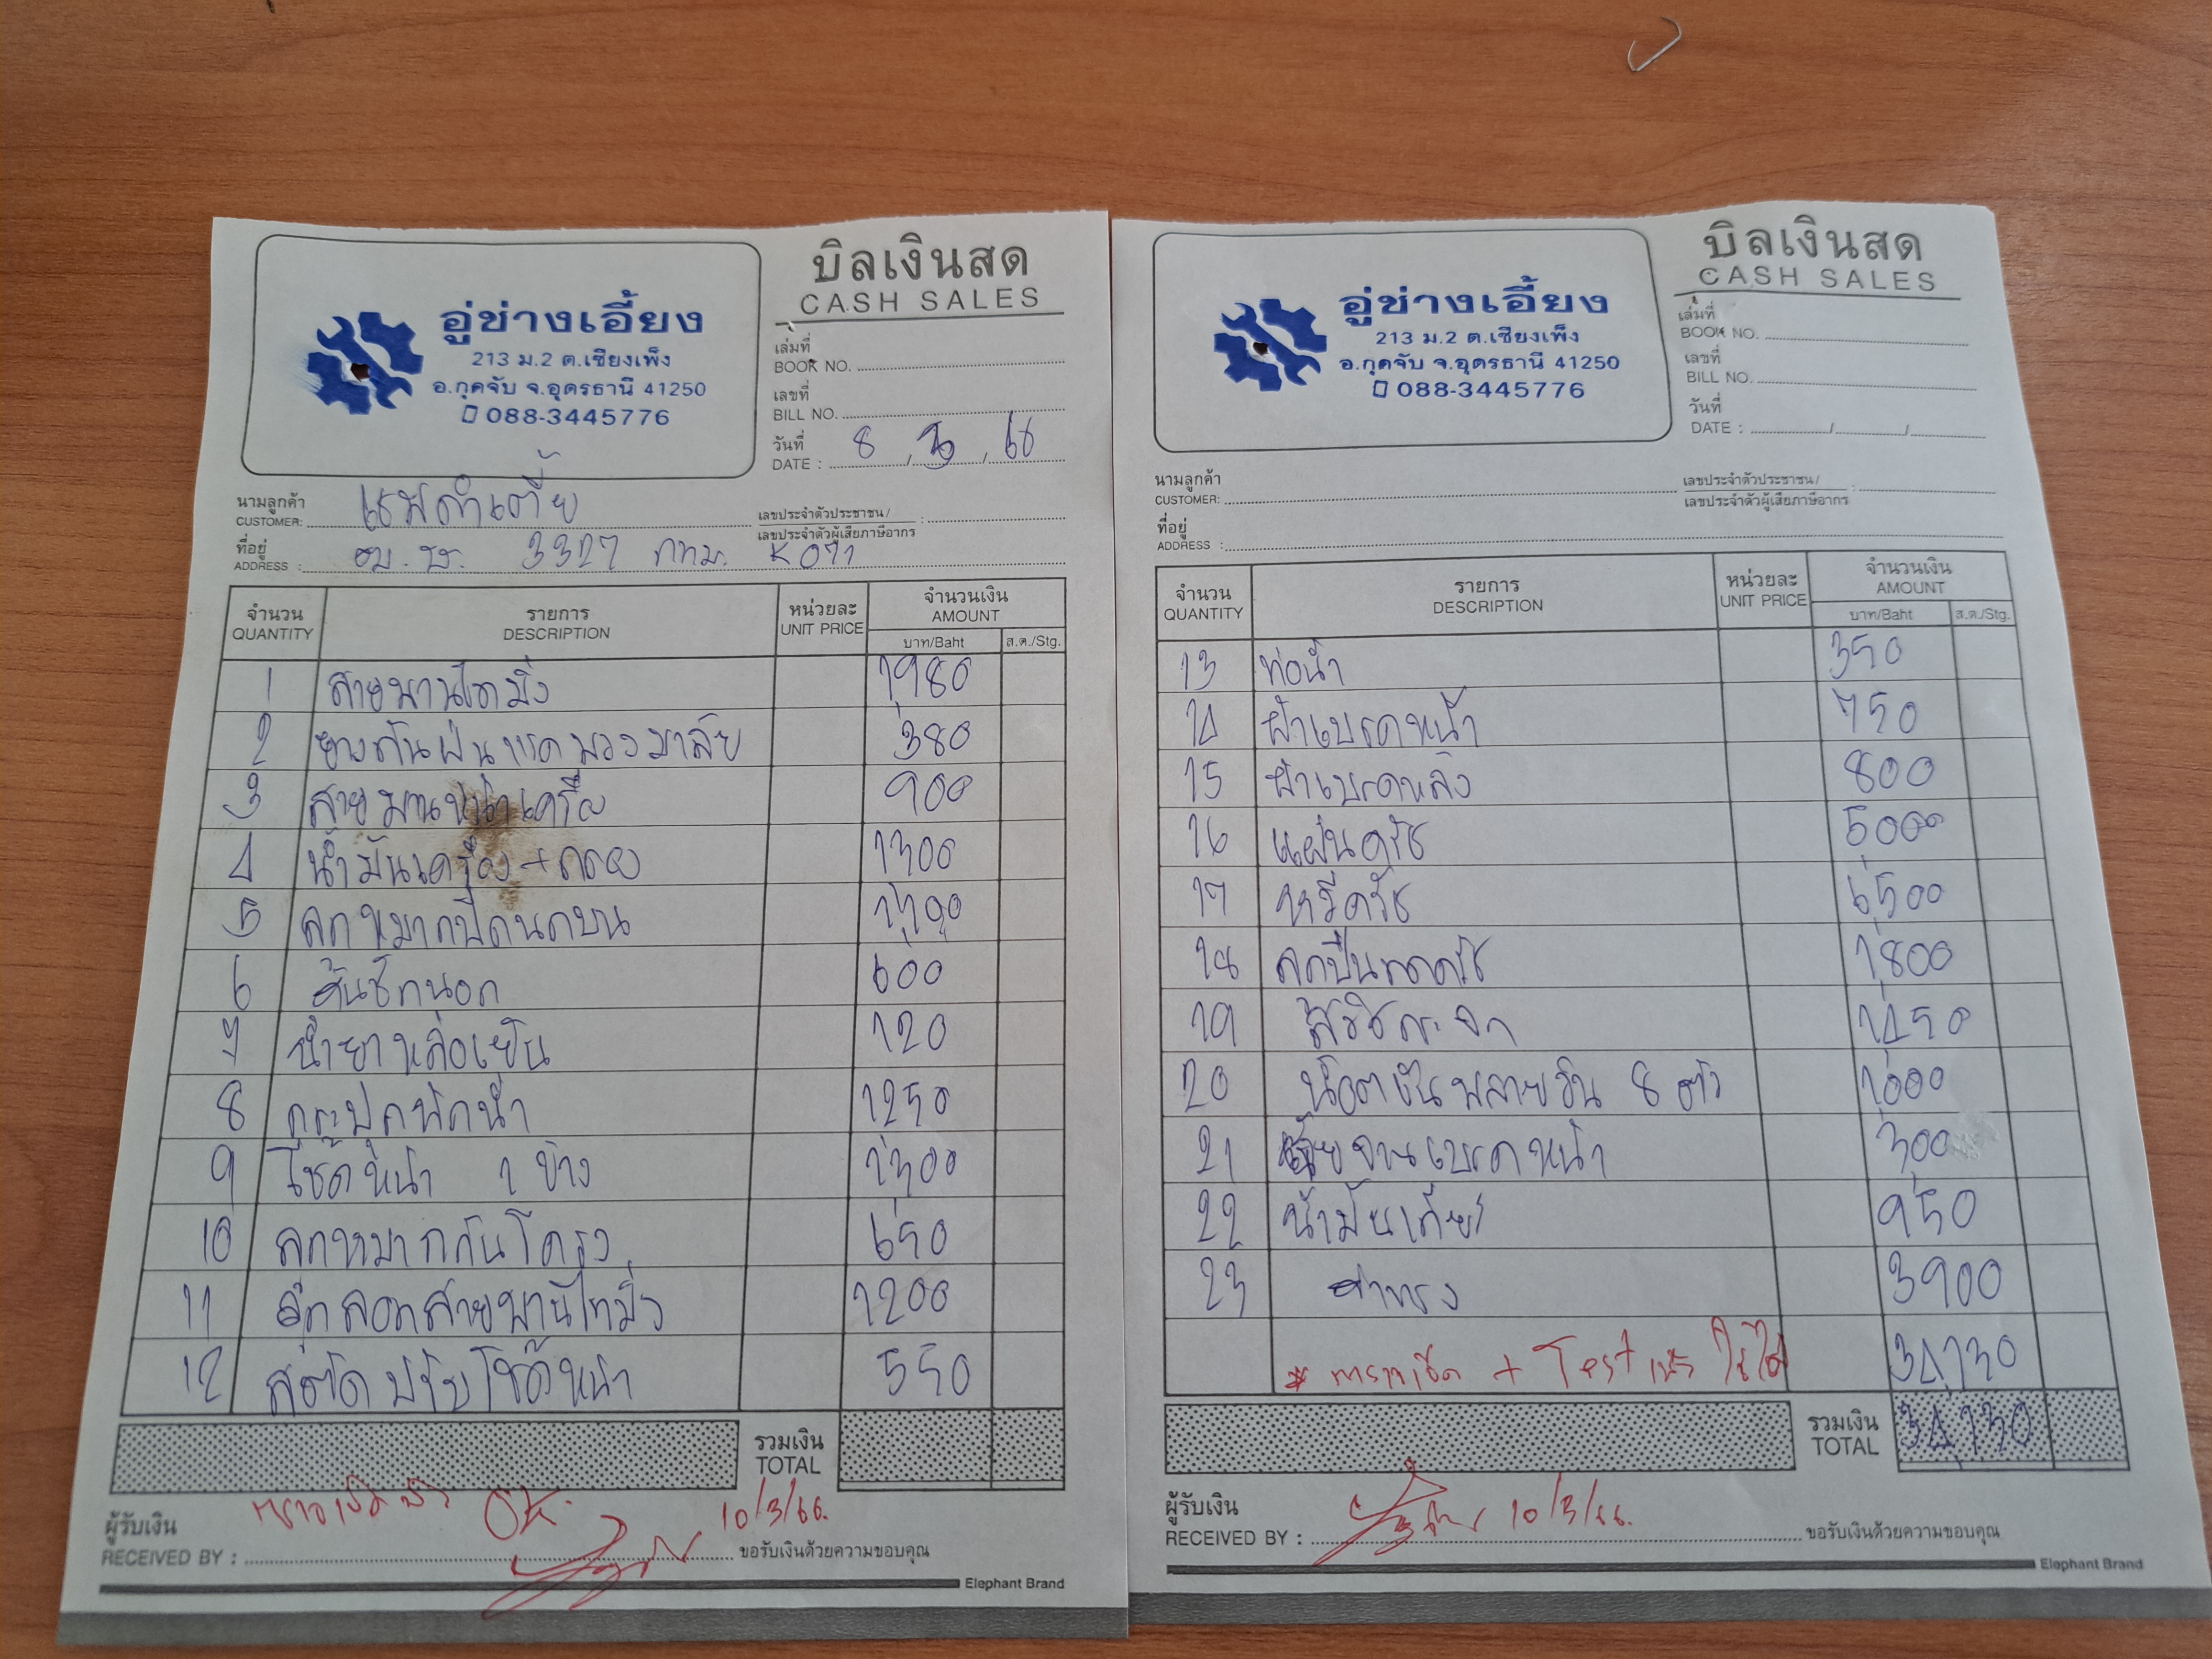 บิลเงินสด
CASH SALES
อู่ช่างเอี้ยง
213 ม.2 ต.เชียงเพ็ง
อ.กุดจับ จ.อุดรธานี 41250
088-3445776
เล่มที่
BOOK NO.
เลขที่
BILL NO.
วันที่
DATE : 8 / 3 / 66
นามลูกค้า
CUSTOMER:
เลขประจำตัวประชาชน/
เลขประจำตัวผู้เสียภาษีอากร :
ที่อยู่
ADDRESS : 3327 กทม.
จำนวน รายการ หน่วยละ จำนวนเงิน
QUANTITY DESCRIPTION UNIT PRICE AMOUNT
บาท/Baht ส.ต./Stg.
1 สายพานไทมิ่ง 1,980
2 ยางกันฝุ่นแรคพวงมาลัย 380
3 สายพานหน้าเครื่อง 900
4 น้ำมันเครื่อง+กรอง 1300
5 ลูกหมากปีกนกบน
6 คันชักนอก 600
7 น้ำยาหล่อเย็น 120
8 กระปุกพักน้ำ 1250
9 โช้คหน้า 1 ข้าง 1,300
10 ลูกหมากกันโครง 650
11 ลูกลอกสายพานไทมิ่ง 1200
12 สตัดปรับโช๊คหน้า 550
รวมเงิน
TOTAL
ตรวจเช็คแล้ว OK.
10/3/66.
ผู้รับเงิน
RECEIVED BY : ขอรับเงินด้วยความขอบคุณ
Elephant Brand
บิลเงินสด
CASH SALES
อู่ช่างเอี้ยง
213 ม.2 ต.เชียงเพ็ง
อ.กุดจับ จ.อุดรธานี 41250
088-3445776
เล่มที่
BOOK NO.
เลขที่
BILL NO.
วันที่
DATE : / /
นามลูกค้า
CUSTOMER:
เลขประจำตัวประชาชน/
เลขประจำตัวผู้เสียภาษีอากร :
ที่อยู่
ADDRESS :
จำนวน รายการ หน่วยละ จำนวนเงิน
QUANTITY DESCRIPTION UNIT PRICE AMOUNT
บาท/Baht ส.ต./Stg.
13 ท่อน้ำ 350
14 ผ้าเบรคหน้า 750
15 ผ้าเบรคหลัง 800
16 แผ่นครัช 5,000
17 หวีครัช 6,500
18 ลูกปืนกดครัช 1,800
19 สวิชกระจก 1,450
20 น๊อตยันพลายวิน 8 ตัว 1,000
21 เจียจานเบรคหน้า 300
22 น้ำมันเกียร์ 950
23 ค่าแรง 3900
* ตรวจเช็ค + Test แล้ว ใช้ได้ 34,730
รวมเงิน
TOTAL 34,730
ผู้รับเงิน
RECEIVED BY : 10/3/66. ขอรับเงินด้วยความขอบคุณ
Elephant Brand